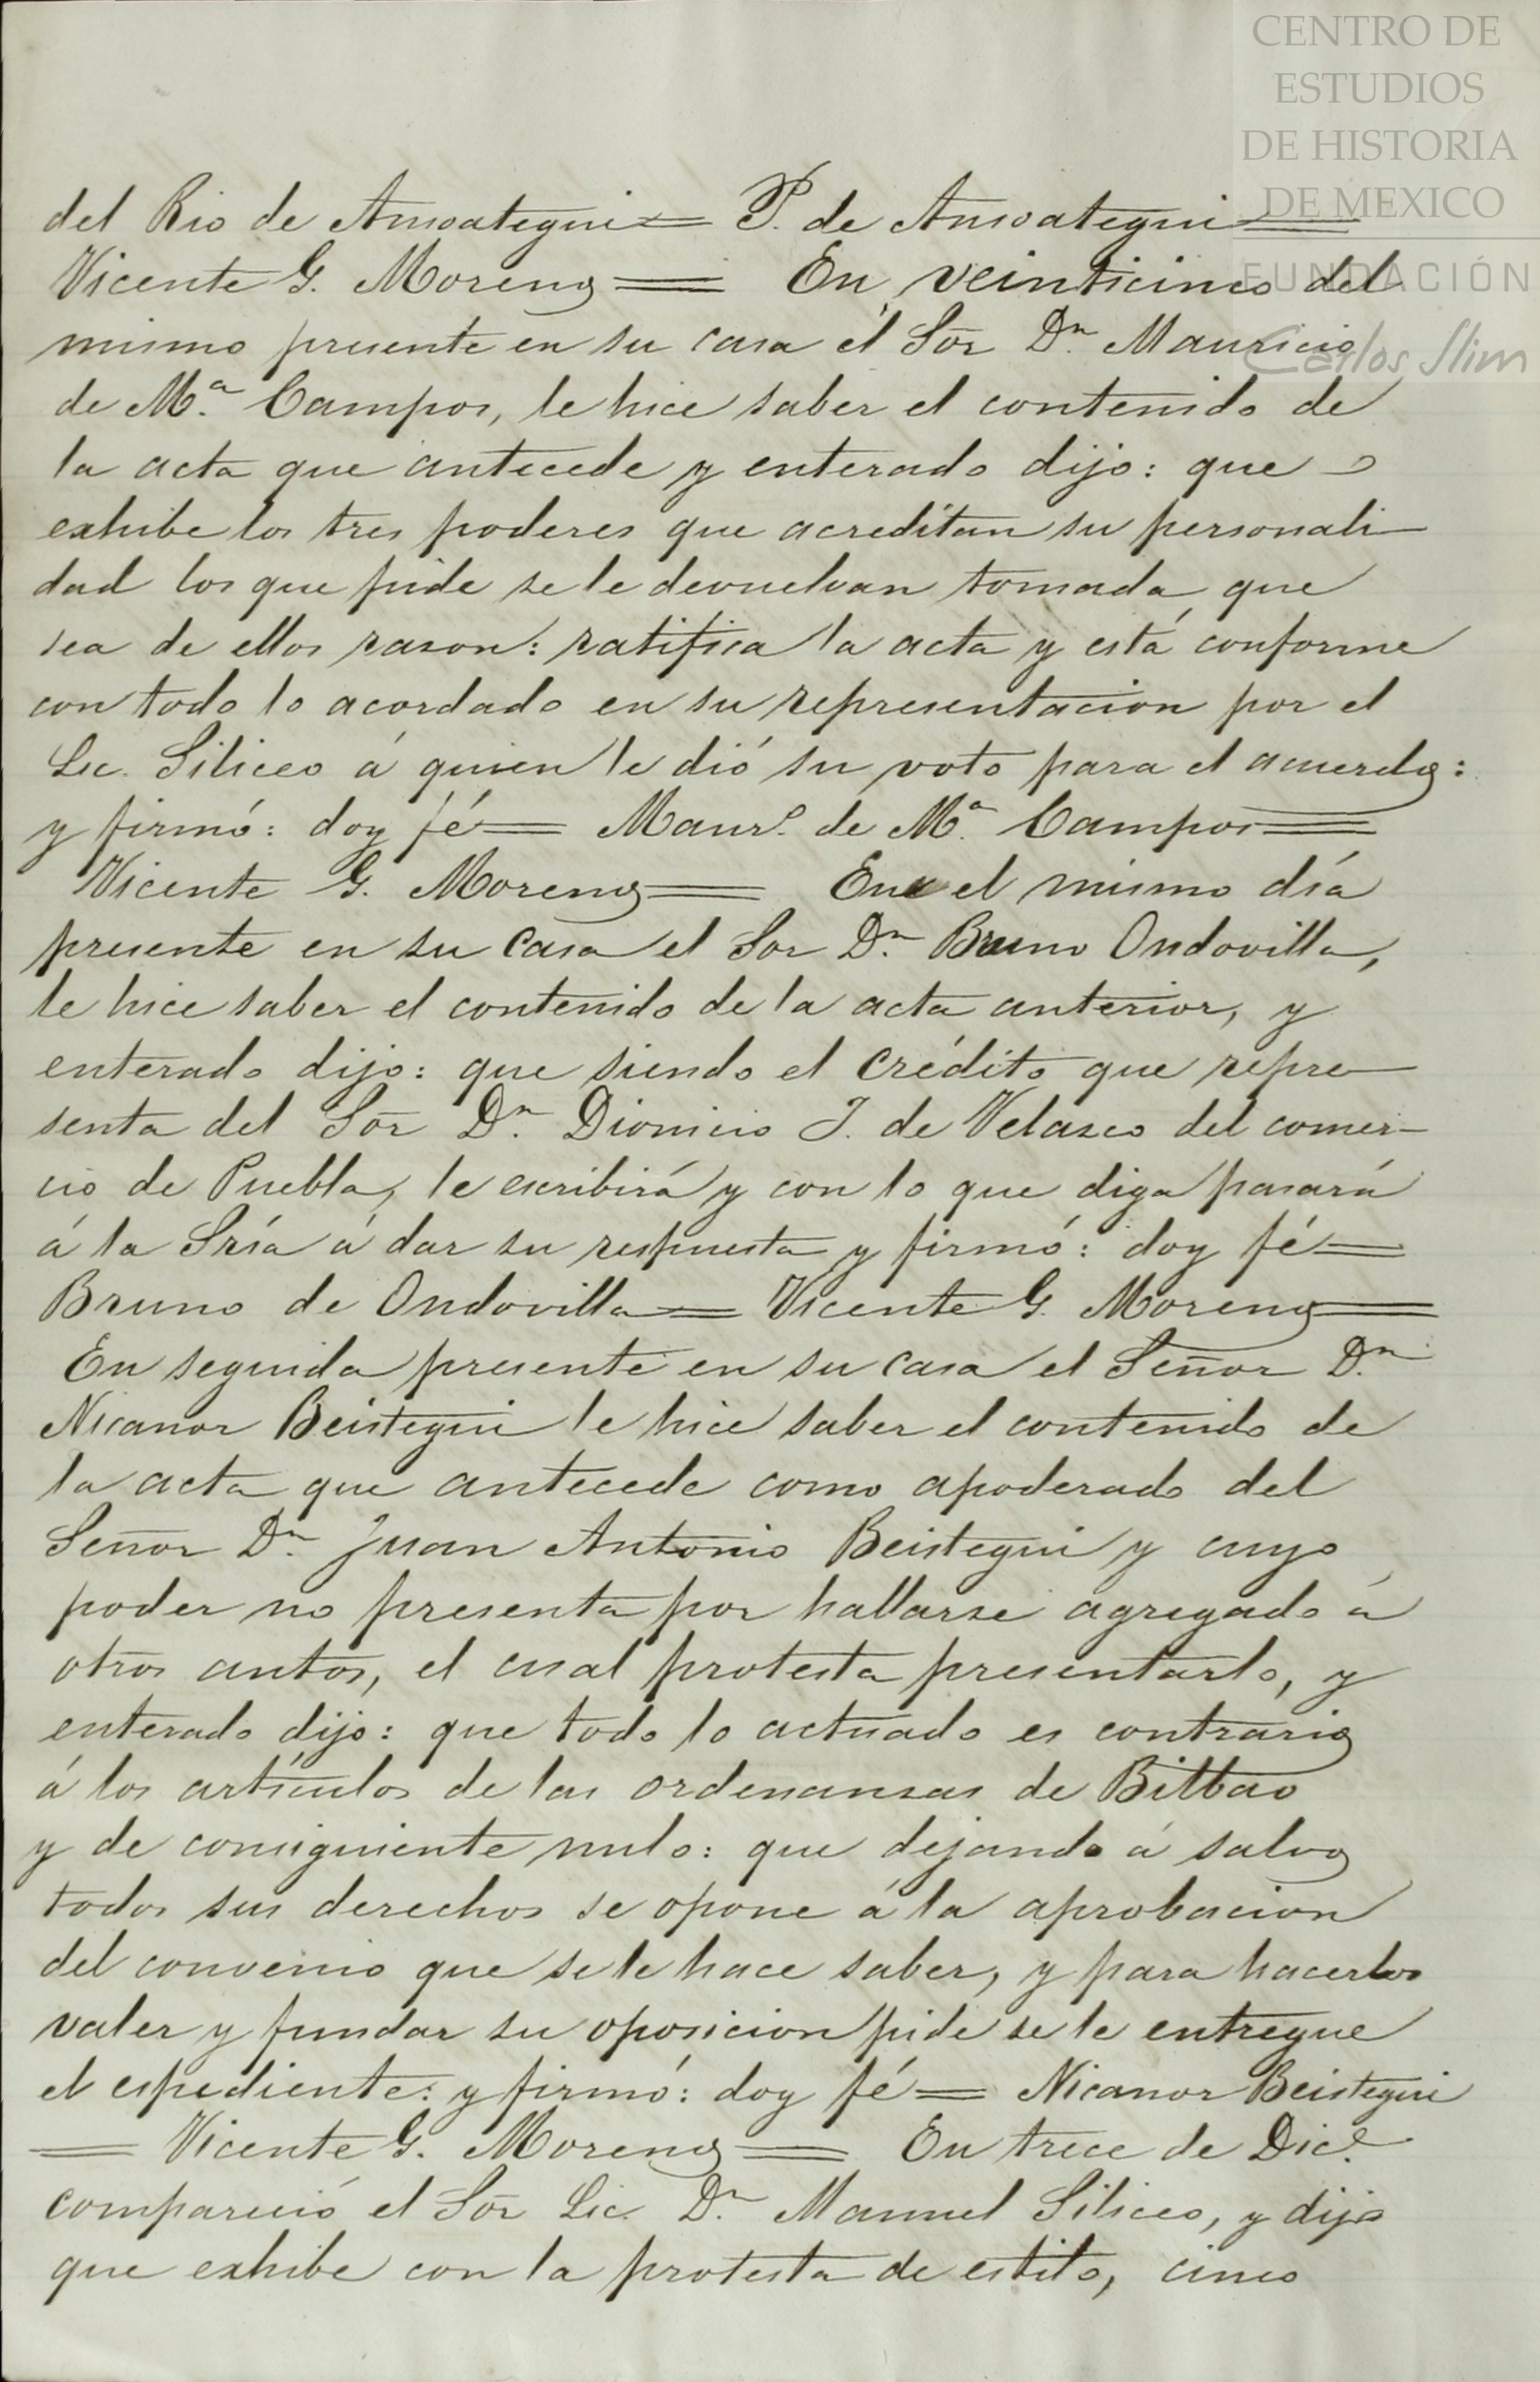 CENTRO DE
ESTUDIOS
DE HISTORIA
DE MEXICO
FUNDACIÓN
Carlos Slim
del Rio de Ansoategui = P. de Ansoategui =
Vicente G. Moreno = En veinticinco del
mismo presente en su casa el Sōr Dn. Mauricio
de Ma. Campos, le hice saber el contenido de
la acta que antecede y enterado dijo: que
exhibe los tres poderes que acreditan su personali-
dad los que pide se le devuelvan tomada que
sea de ellos rason: ratifica la acta y está conforme
con todo lo acordado en su representacion por el
Lic. Siliceo á quien le dió su voto para el acuerdo:
y firmó: doy fé = Maur.o de Ma. Campos =
Vicente G. Moreno = En el mismo día
presente en su casa el Sor Dn. Bruno Ondovilla,
le hice saber el contenido de la acta anterior, y
enterado dijo: que siendo el crédito que repre-
senta del Sōr Dn. Dionicio J. de Velasco del comer-
cio de Puebla, le escribirá y con lo que diga pasará
á la Sría á dar su respuesta y firmó: doy fé =
Bruno de Ondovilla = Vicente G. Moreno =
En seguida presente en su casa el Señor Dn.
Nicanor Beistegui le hice saber el contenido de
la acta que antecede como apoderado del
Señor Dn. Juan Antonio Beistegui y cuyo
poder no presenta por hallarse agregado á
otros autos, el cual protesta presentarlo, y
enterado dijo: que todo lo actuado es contrario
á los artículos de las ordenansas de Bilbao
y de consiguiente nulo: que dejando á salvo
todos sus derechos se opone á la aprobacion
del convenio que se le hace saber, y para hacerlos
valer y fundar su oposicion pide se le entregue
el espediente: y firmó: doy fé = Nicanor Beistegui
= Vicente G. Moreno = En trece de Dice.
compareció el Sōr Lic. Dn. Manuel Siliceo, y dijo
que exhibe con la protesta de estilo, cinco